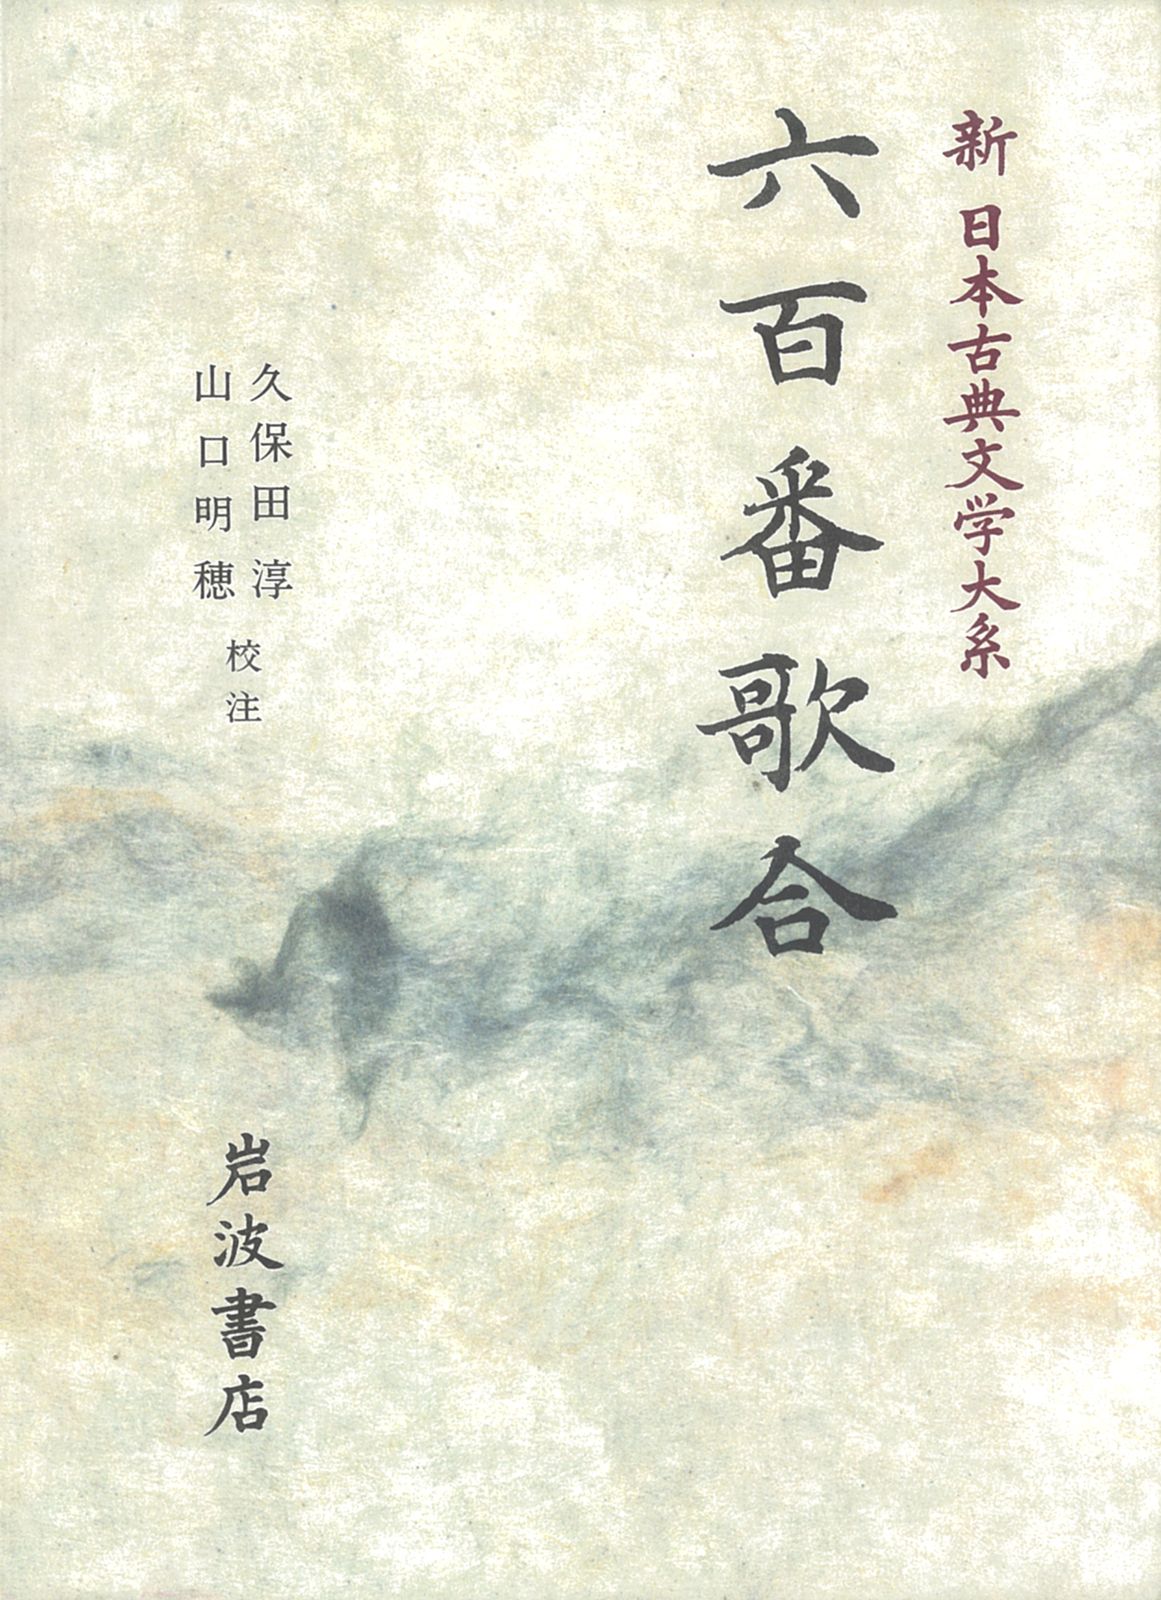 新 日本古典文学大系
六百番歌合
久保田 淳
山口明穂
校注
岩波書店